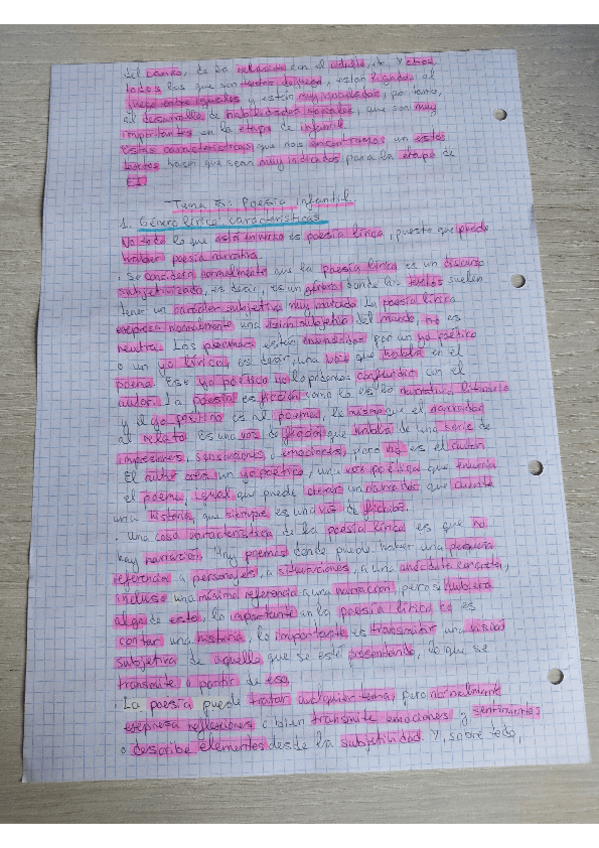 del campo, de la relación con el adulto, etc. Y otros
todos los que son textos de juego, están ligados al
juego entre iguales y están muy vinculados, por tanto,
al desarrollo de habilidades sociales, que son muy
importantes en la etapa de infantil.
Estas características que nos encontramos en estos
textos hacen que sean muy indicados para la etapa de
E.I.
Tema 5: Poesía infantil.
1. Género lírico características
No todo lo que está en verso es poesía lírica, puesto que puede
haber poesía narrativa.
· Se considera normalmente que la poesía lírica es un discurso
subjetivizado, es decir, es un género donde los textos suelen
tener un carácter subjetivo muy marcado. La poesía lírica
expresa normalmente una visión subjetiva del mundo, no es
neutra. Los poemas están enunciados por un yo poético
o un yo lírico, es decir, una voz que habla en el
poema. Ese yo poético no lo podemos confundir con el
autor. La poesía es ficción como lo es la narrativa literaria
y el yo poético es al poema, lo mismo que el narrador
al relato: es una voz de ficción que habla de una serie de
impresiones, sensaciones o emociones, pero no es el autor.
El autor crea un yo poético, una voz poética que enuncia
el poema, igual que puede crear un narrador que cuenta
una historia, que siempre es una voz de ficción.
· Una cosa característica de la poesía lírica es que no
hay narración. Hay poemas donde puede haber una pequeña
referencia a personajes, a situaciones, a una anécdota concreta,
incluso una mínima referencia a una narración, pero si hubiera
algo de esto, lo importante en la poesía lírica no es
contar una historia, lo importante es transmitir una visión
subjetiva de aquello que se está presentando, lo que se
transmite a partir de eso.
· La poesía puede tratar cualquier tema, pero normalmente
expresa reflexiones o bien transmite emociones y sentimientos
o describe elementos desde la subjetividad. Y, sobre todo,